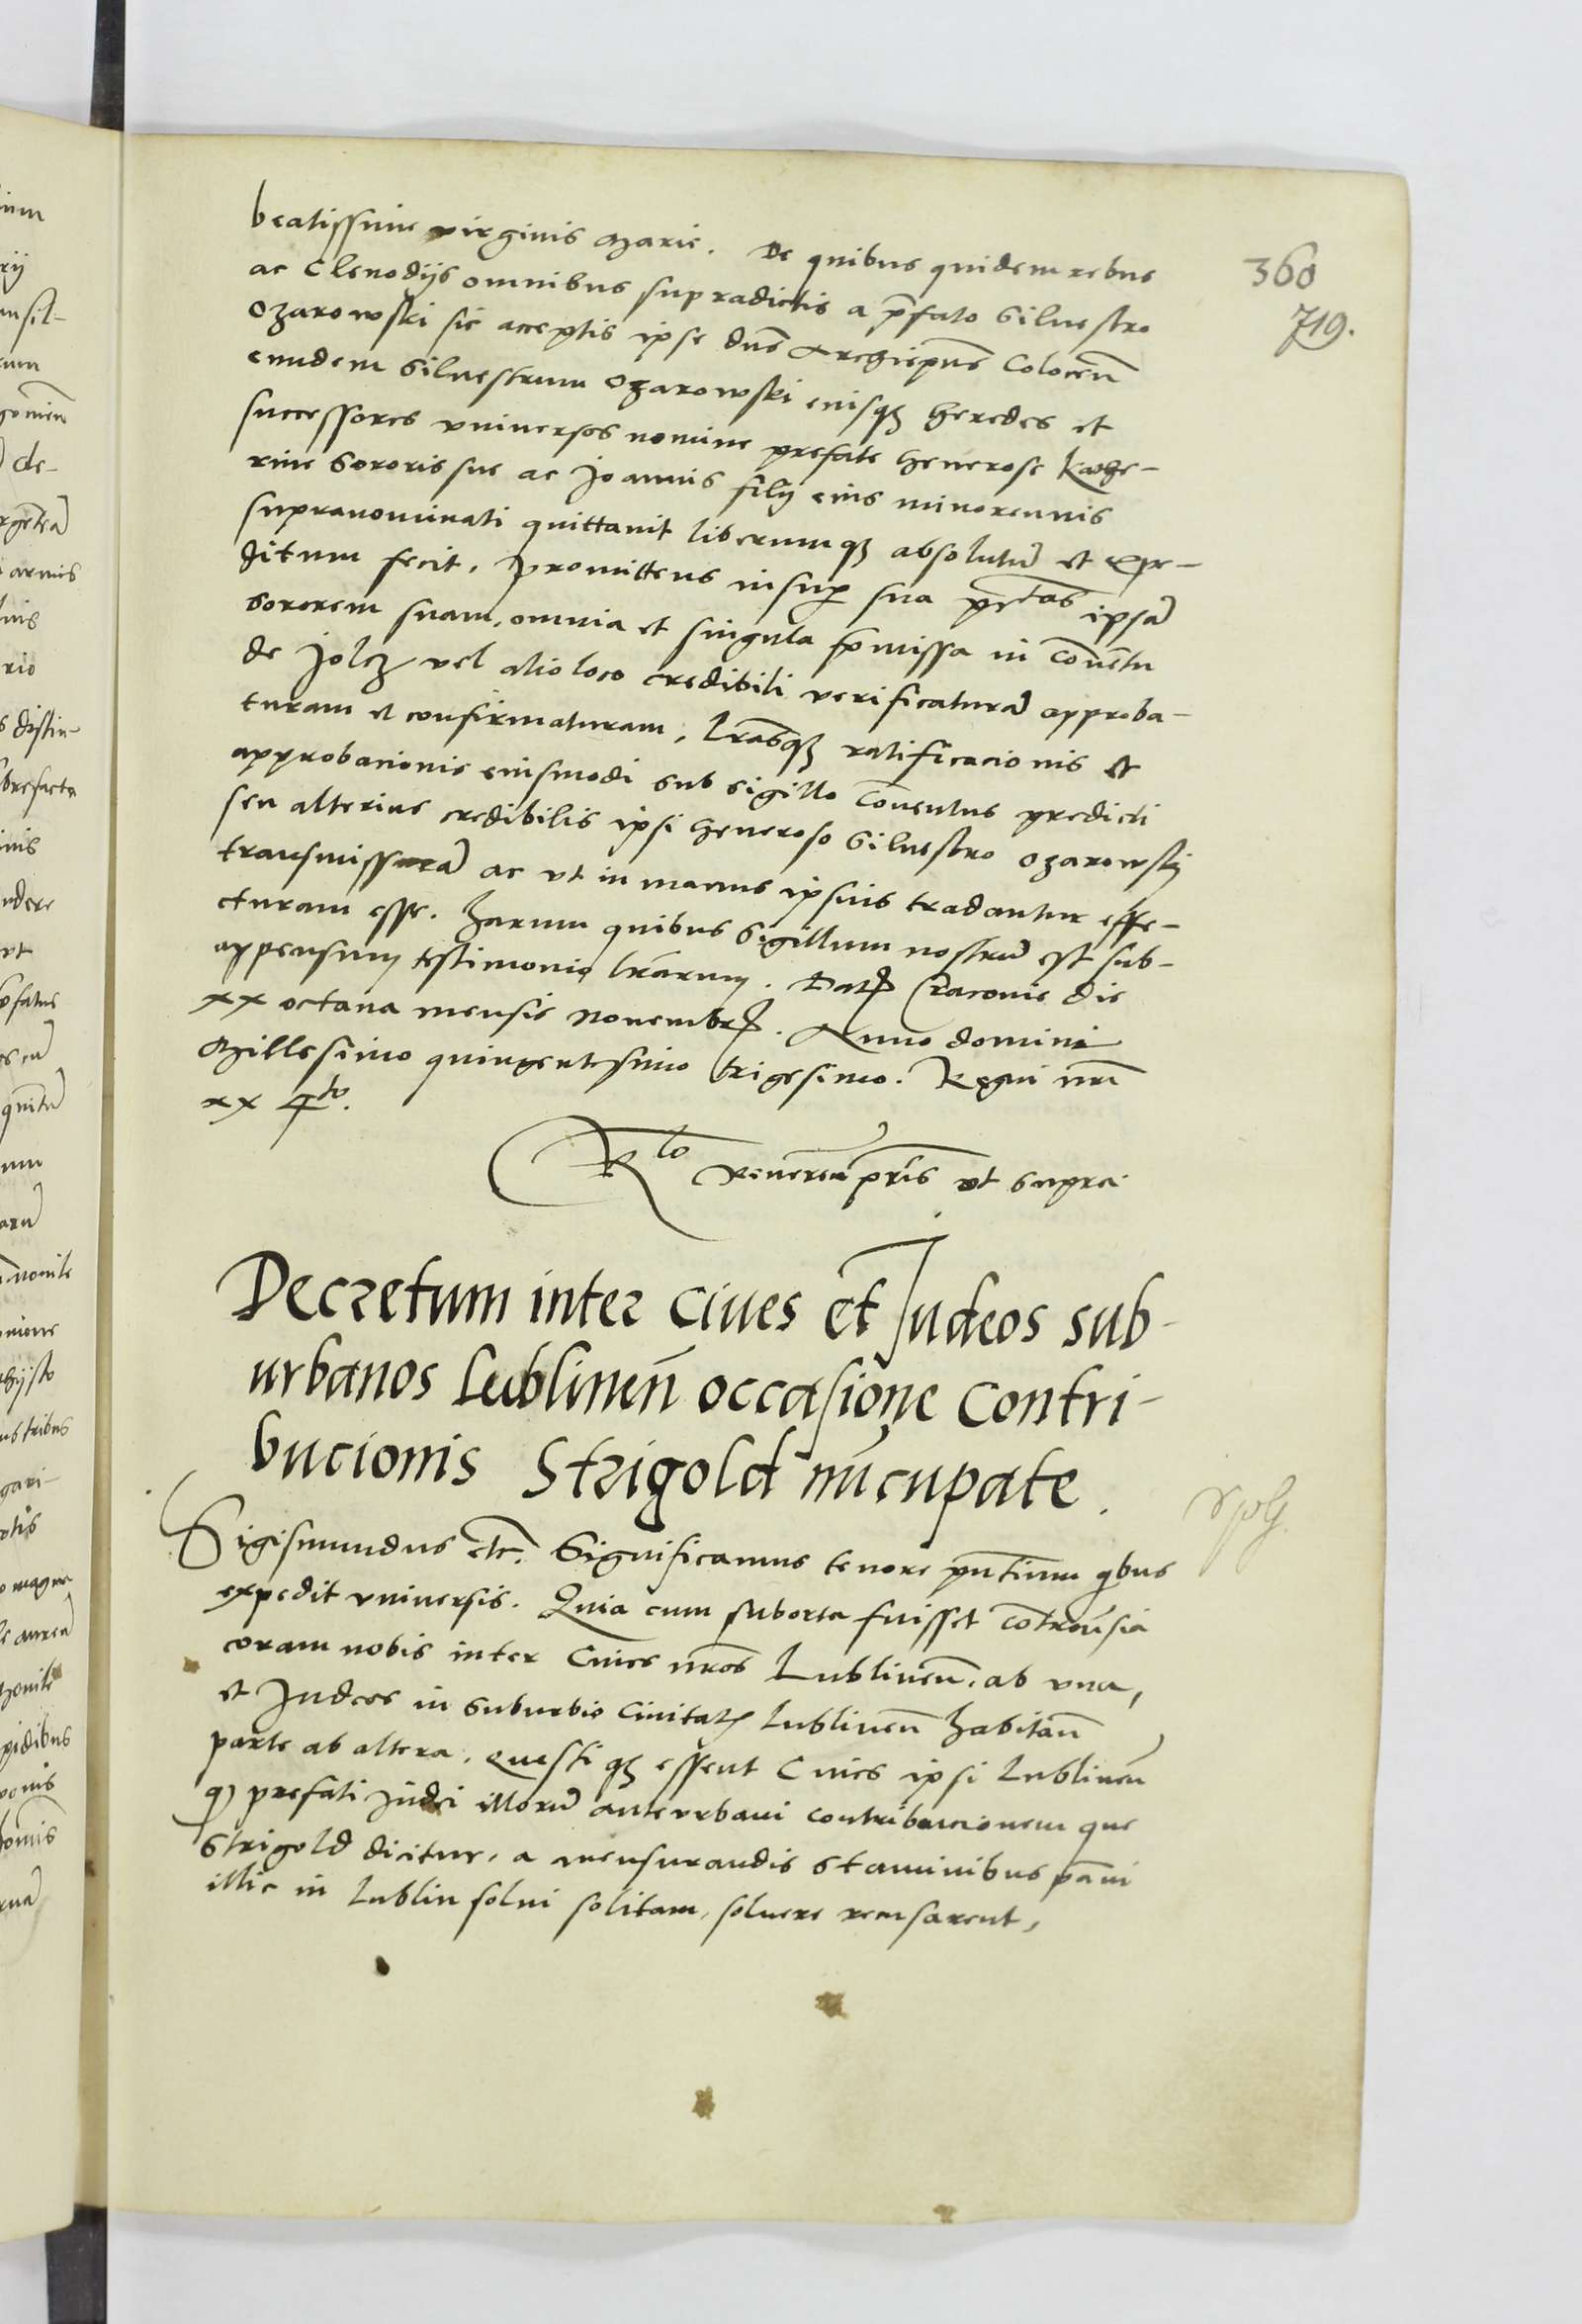 beatissime virginis Marie. De quibus quidem rebus
ac Clenodijs omnibus supradictis a p̄fato Siluestro
Ozarowski sic acceptis ipse dn̄s Archiep̄us Colocen̄
eundem Siluestrum Ozarowski eiusqꝫ heredes et
successores vniuersos nomine prefate Generose Kathe-
rine Sororis sue ac Joannis filij eius minorennis
supranominati quittauit liberumqꝫ absolutū et expe-
ditum fecit, promittens insup sua pr̄tas ipsā
sororem suam, omnia et singula p̄missa in Conuētu
de Jolcz vel alio loco credibili verificaturā approba-
turam et confirmaturam, lrāsqꝫ ratificacionis et
approbacionis eiusmodi sub sigillo Cōuentus predicti
seu alterius credibilis ipsi Generoso Siluestro Ozarowskj
transmissurā ac vt in manus ipsius tradantur effe-
cturam esse. Harum quibus Sigillum nostrū est sub-
appensum testimonio lrārum. Datꝭ Cracouie die
xx octaua mensis Nouembrꝭ. Anno domini
Millesimo quingentesimo trigesimo. Regni nr̄i
xx 4to.
Rlo Reueren̄ pr̄is vt supra
Decretum inter Ciues et Judeos sub-
urbanos Lublinen̄ occasione Contri-
bucionis Strigold nūcupate.
Sigismundus etc. Significamus tenore pn̄tium qbus
expedit vniuersis. Quia cum suborta fuisset Cōtrouersia
coram nobis inter Ciues nr̄os Lublinen̄. ab vna,
et Judeos in Suburbio Ciuitatꝭ Lublinen̄ habitan̄
parte ab altera. questiqꝫ essent Ciues ipsi Lublinen̄
qꝫ prefati Judei illorū anteurbani contribucionem que
Strigold dicitur, a mensurandis staminibus pāni
illic in Lublin solui solitam, soluere recusarent,
360
719.